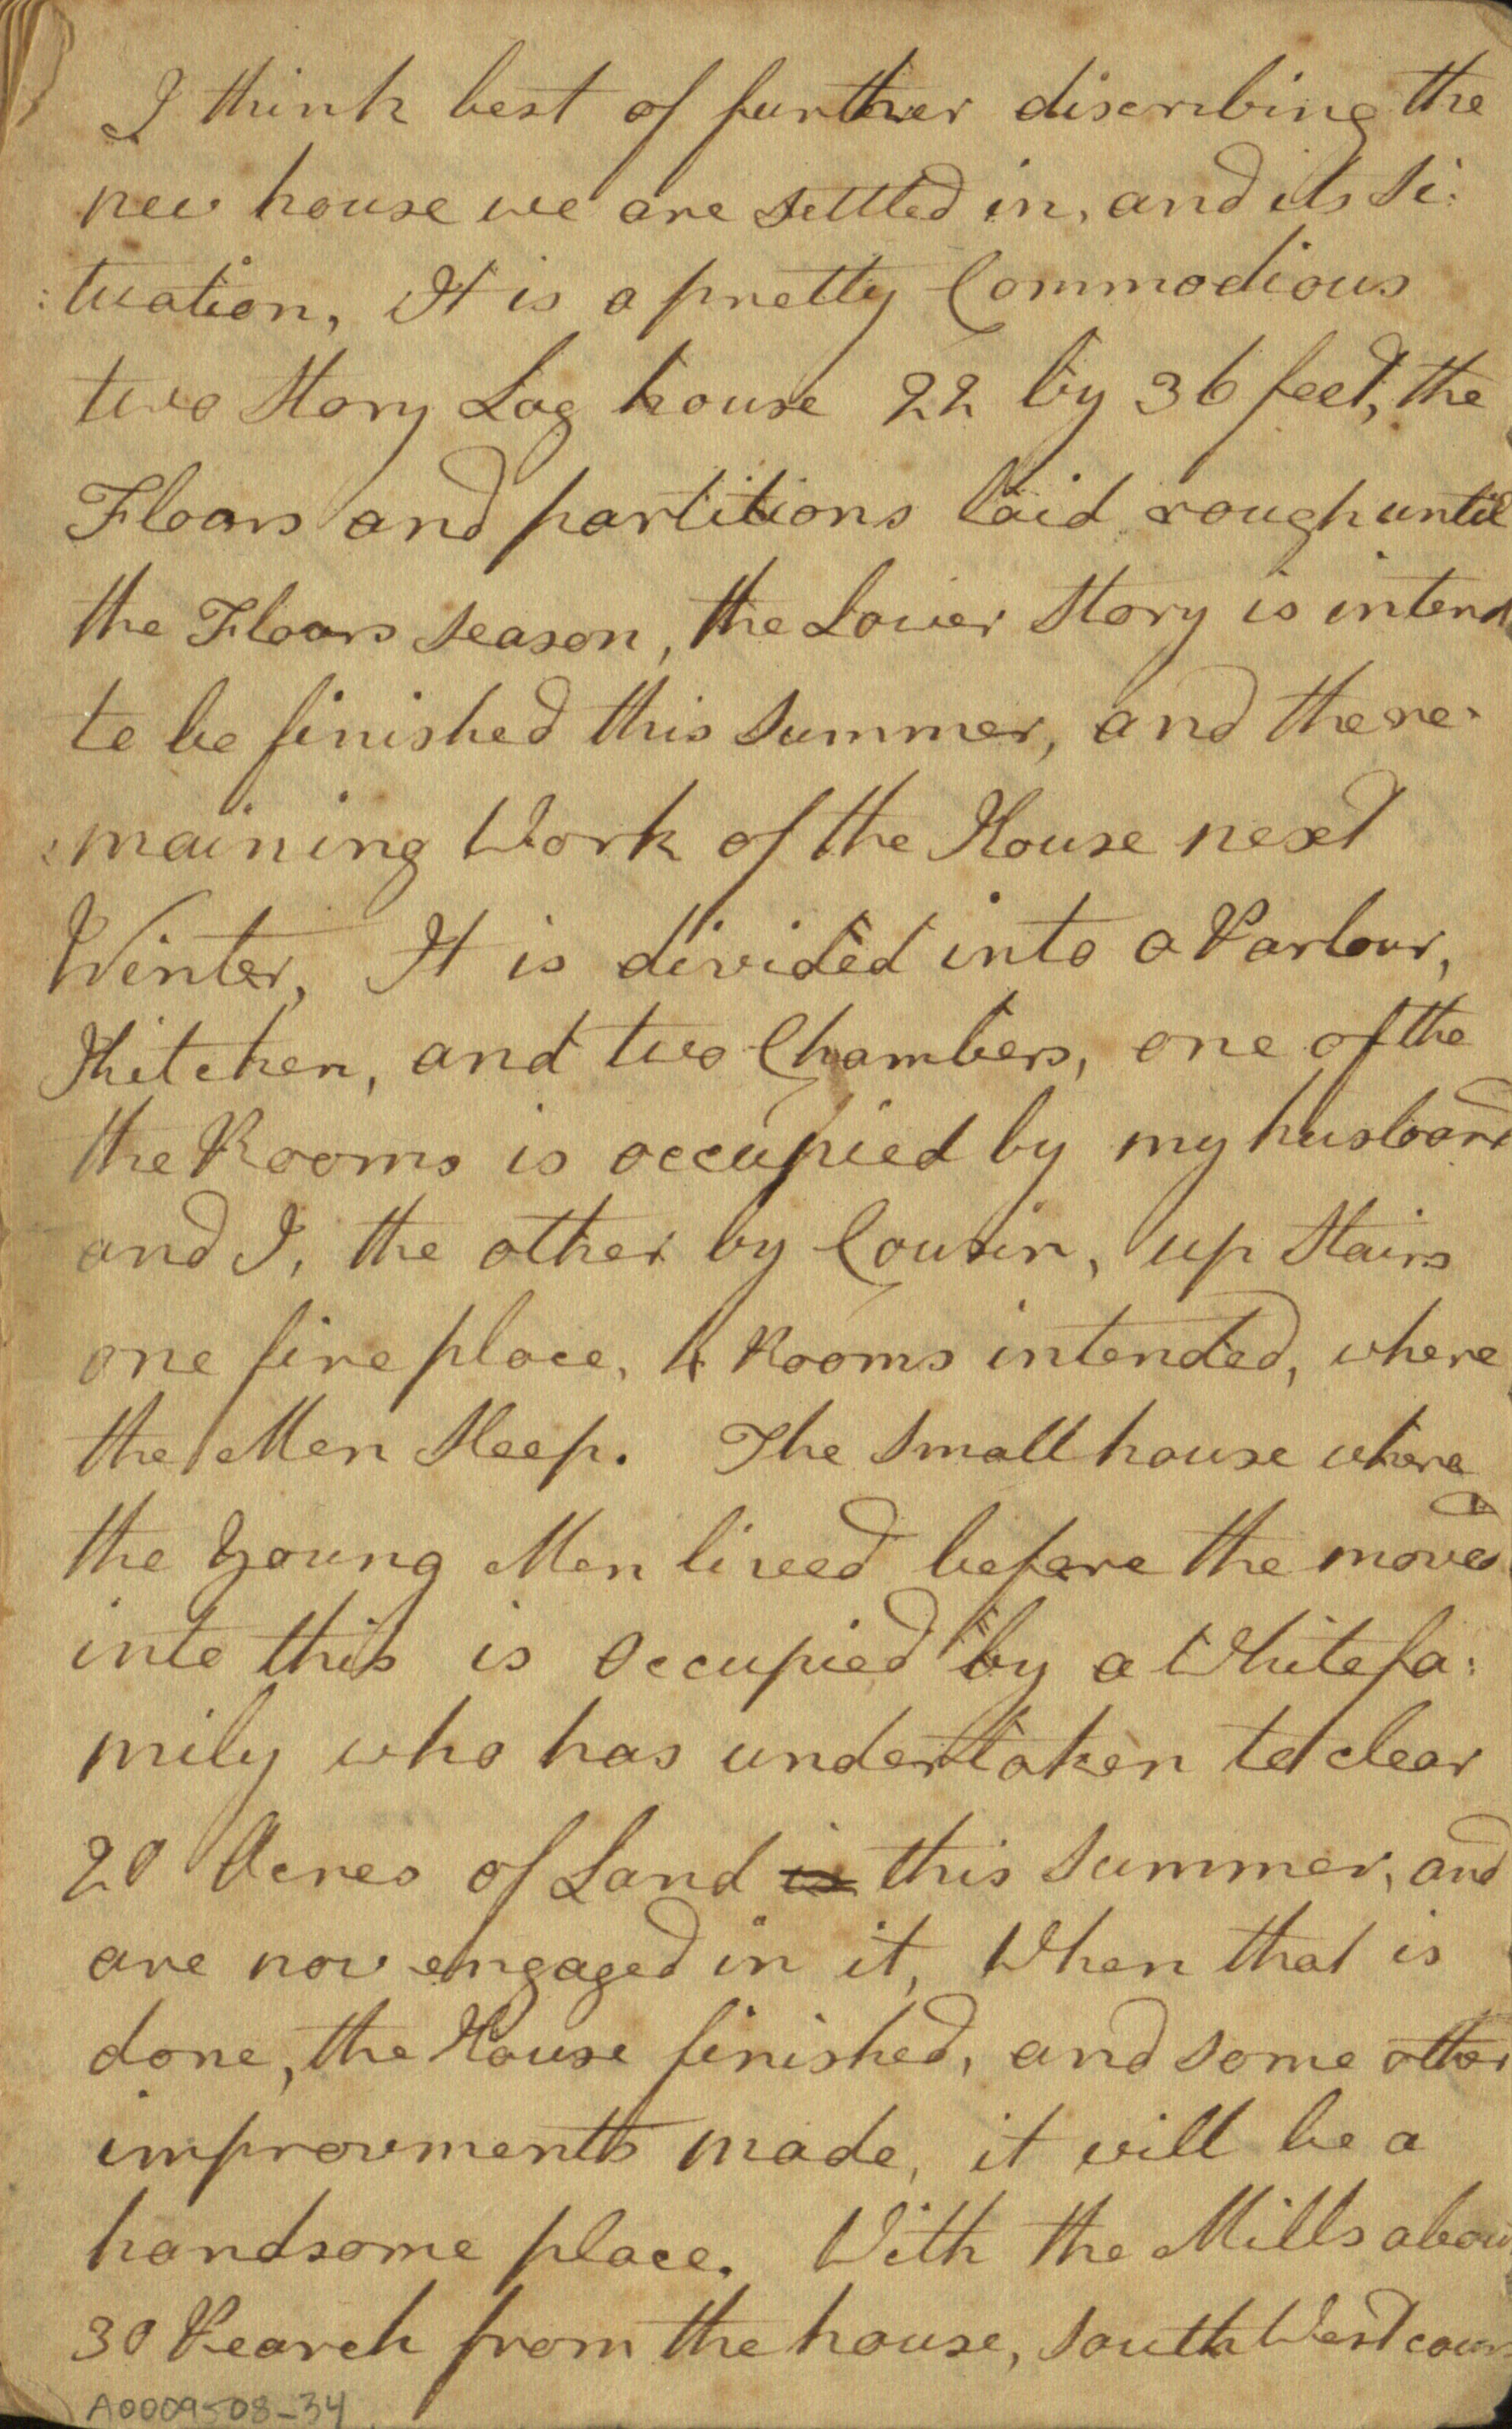 I think best of further discribing the
new house we are settled in, and its si:
:tuation, It is a pretty Commodious
two Story Log house 22 by 36 feet, the
Floors and partitions laid rough until
the Floors season, the Lower Story is intend
to be finished this summer, and the re:
:maining Work of the House next
Winter, It is divided into a Parlour,
Kitchen, and two Chambers, one of the
the Rooms is occupied by my husband
and I, the other by Cousin, up Stairs
one fire place, 4 Rooms intended, where
the Men Sleep. The small house where
the Young Men lived before the moved
into this is Occupied by a White fa:
mily who has undertaken to clear
20 Acres of Land is this summer, and
are now engaged in it, When that is
done, the House finished, and some other
improvments made, it will be a
handsome place. With the Mills abou
30 Pearch from the house, South West cours
A0009508-34